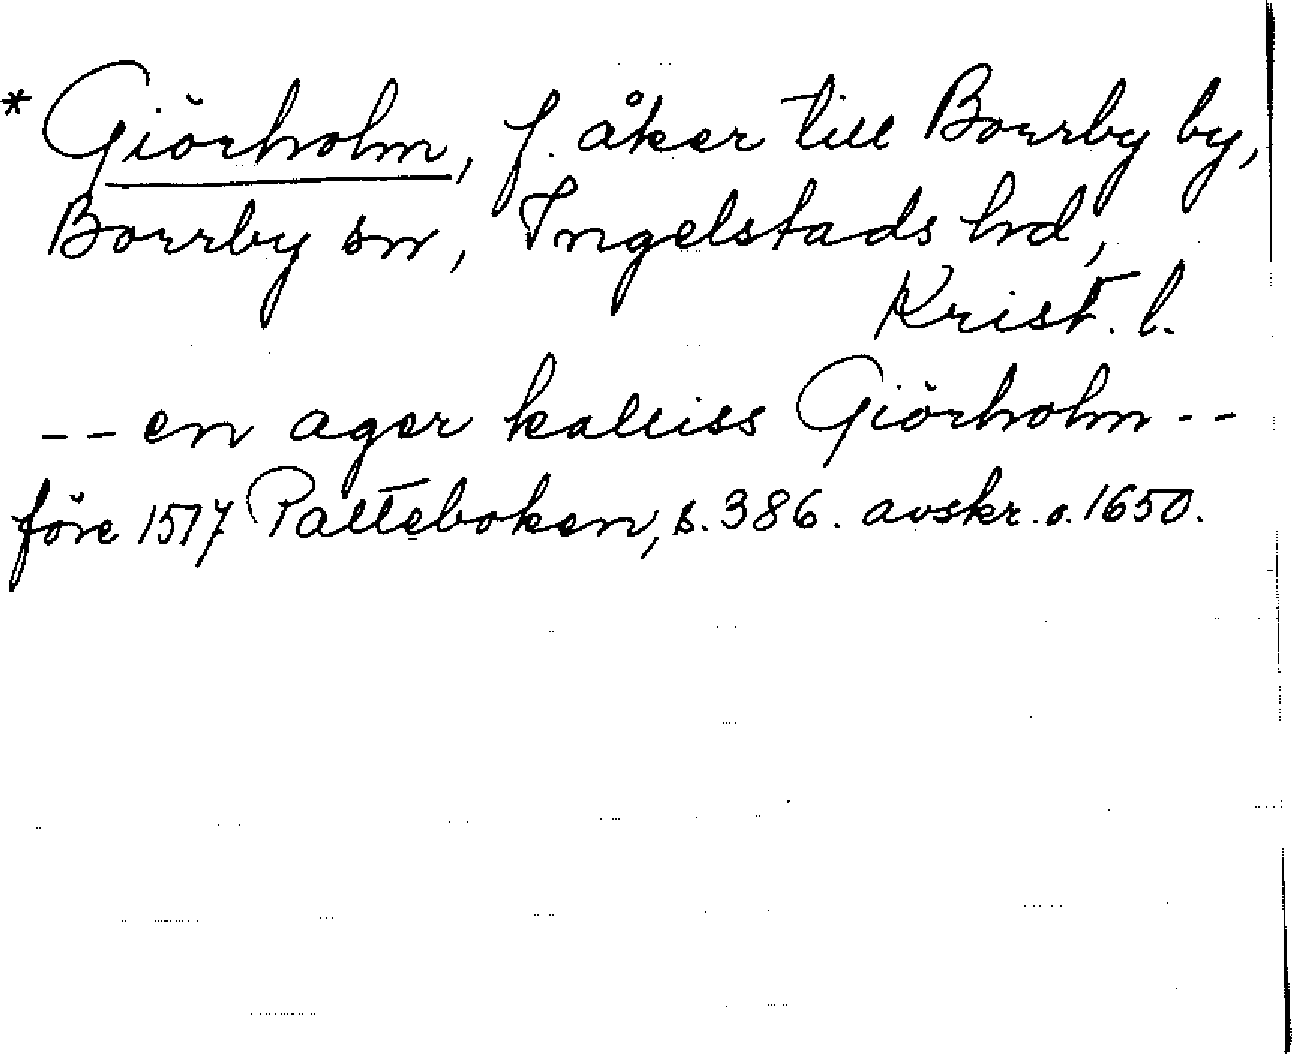 * Giörholm, f. åker till Borrby by,
Borrby sn, Ingelstads hd,
Krist. l.
-- en ager kalliss Giörholm --
före 1517 Palteboken, s. 386. avskr. o. 1650.